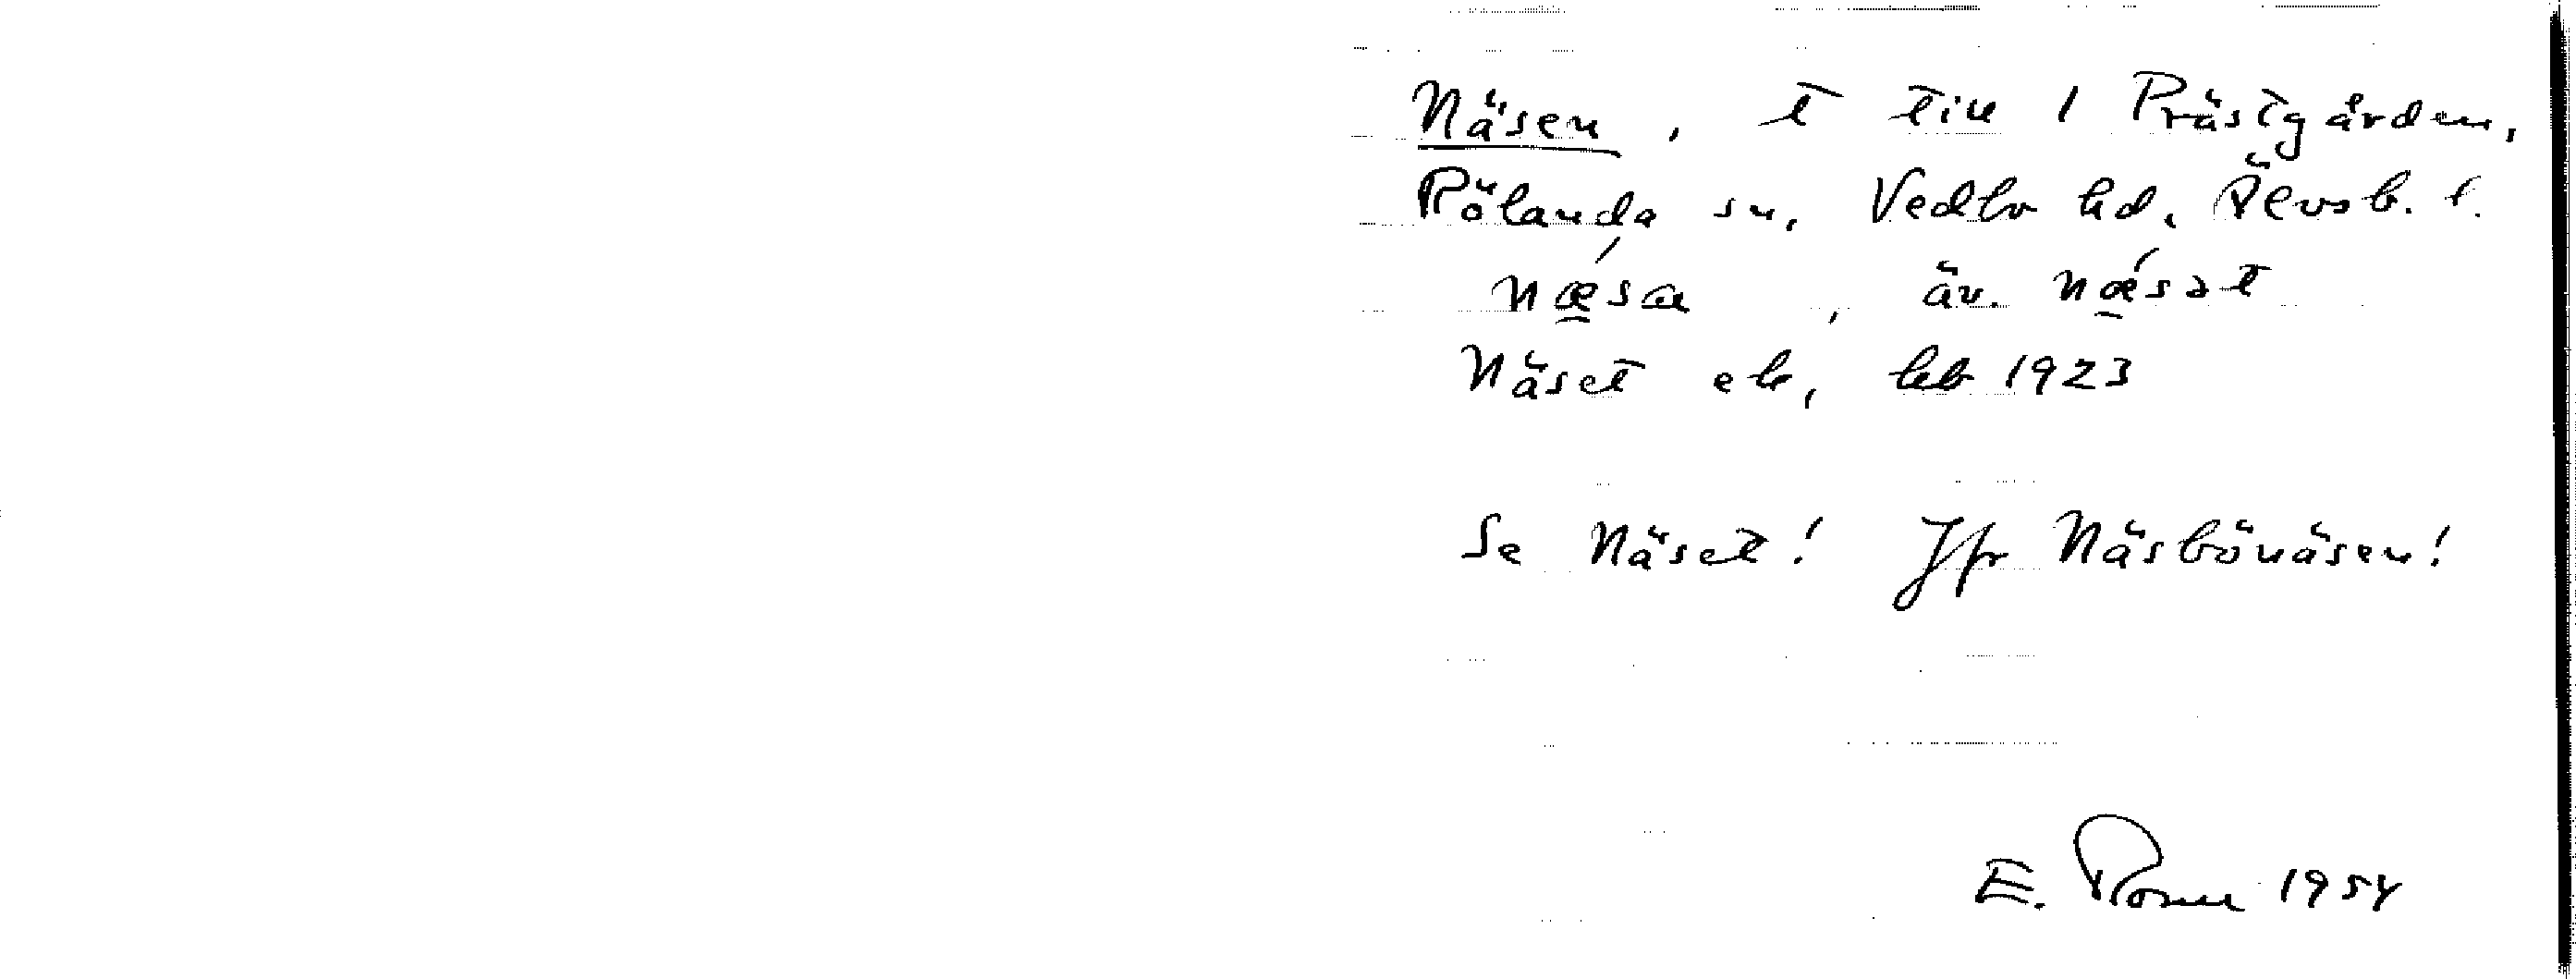 Näsen, t till 1 Prästgården,
Rölanda sn, Vedbo hd, Älvsb. l.
nǽ̲sa, äv. nǽ̲sət
Näset ek, kb 1923
Se Näset! Jfr Näsbönäsen!
E. 1954